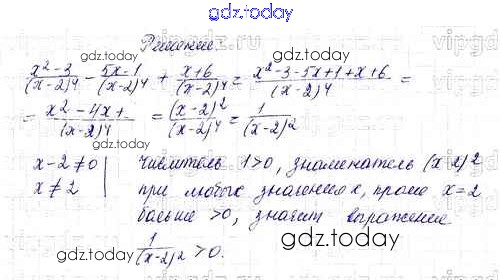 gdz.today
Решение
gdz.today
x²-3/(x-2)⁴ - 5x-1/(x-2)⁴ + x+6/(x-2)⁴ = x²-3-5x+1+x+6/(x-2)⁴ =
= x²-4x+/(x-2)⁴ = (x-2)²/(x-2)⁴ = 1/(x-2)²
gdz.today
x-2≠0 | Числитель 1>0, знаменатель (x-2)²
x≠2 | при любых значениях, кроме x=2
больше >0, значит выражение
1/(x-2)² >0.
gdz.today
gdz.today